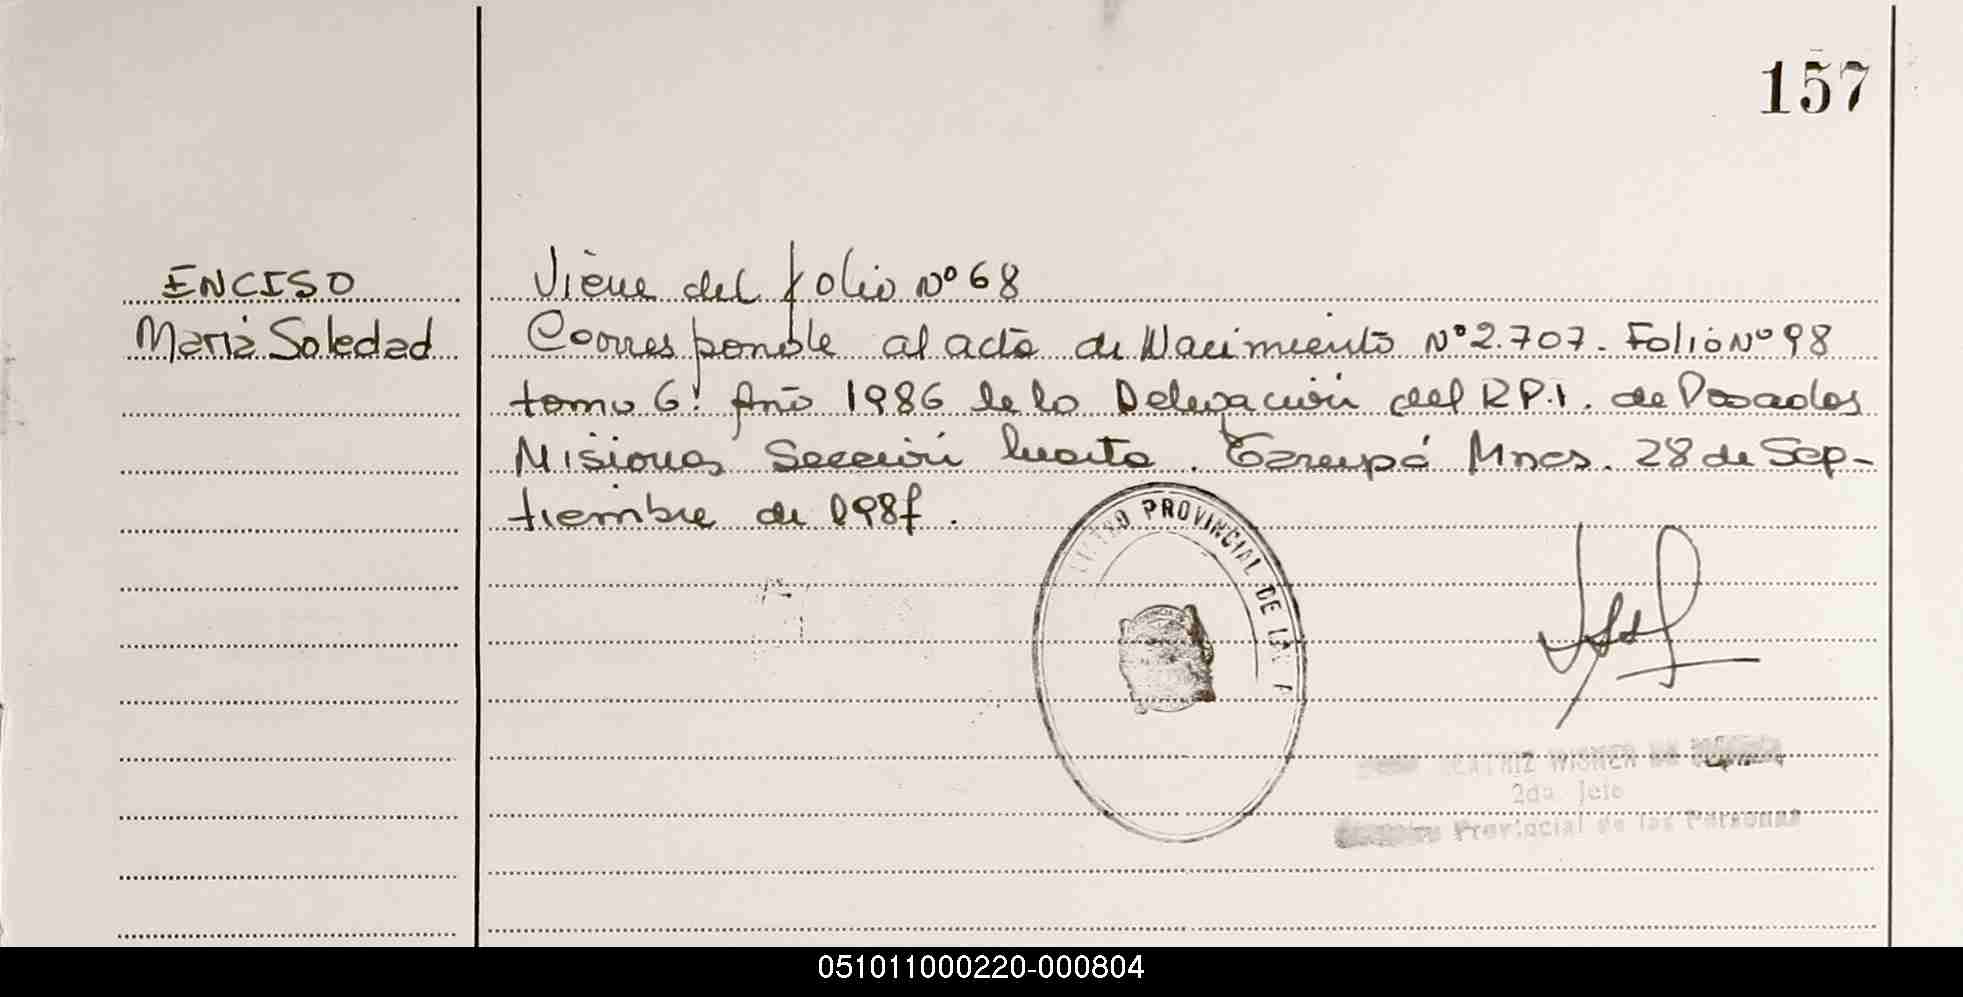 157
ENCISO
María Soledad
Viene del folio Nº 68
Corresponde al acta de Nacimiento Nº 2.707. Folio Nº 98
tomo 6º Año 1986 de la Delegación del R.P.I. de Posadas
Misiones Sección Cuarta. Garupá Mnes. 28 de Sep-
tiembre de 198
PROVINCIAL DE LA
BEATRIZ WISNER DE
2do Jefe
Provincial de las Personas
051011000220-000804